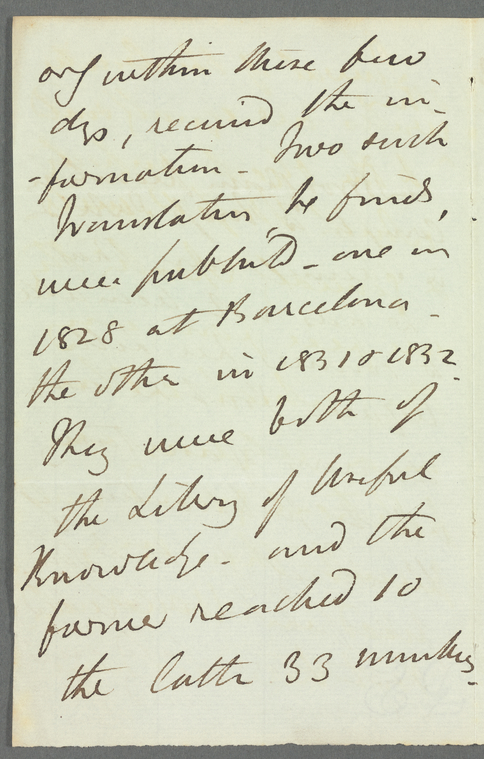 only within these few
days, received the in-
-formation - Two such
translations, he finds,
were publish'd - one in
1828 at Barcelona -
the other in 1831 or 1832.
They were both of
the Library of Useful
Knowledge - and the
former reached 10
the latter 33 numbers -